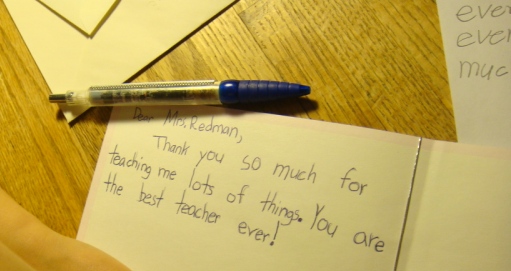 Dear Mrs. Redman,
Thank you so much for
teaching me lots of things. You are
the best teacher ever!
ever
ever
muc